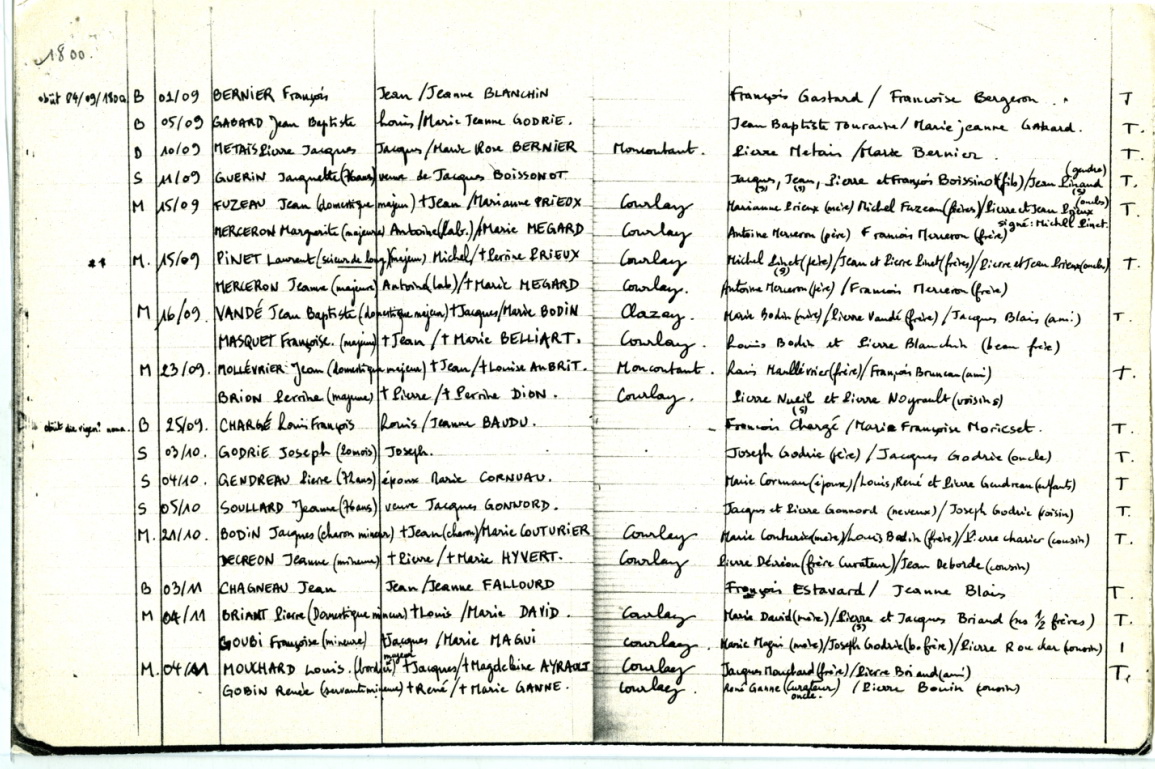 1800.
B 01/09 BERNIER François Jean / Jeanne BLANCHIN François Gastard / Francoise Bergeron . T
B 05/09 GABARD Jean Baptiste Louis / Marie Jeanne GODRIE. Jean Baptiste Touraine / Marie jeanne Gabard. T.
D 10/09 METAIS Pierre Jacques Jacques / Marie Rose BERNIER Moncoutant. Pierre Metais / Marie Bernier. T.
S 11/09 GUERIN Jacquette (76ans) veuve de Jacques BOISSONOT. Jacques, (s) Jean, (s) Pierre et François Boissinot (fils) / Jean (s) (gendre) T.
M 15/09 FUZEAU Jean (domestique majeur) †Jean / Marianne PRIEUX Courlay Marianne Prieux (mère) Michel Fuzeau (frères) / Pierre et Jean Prieux (oncles) T.
MERCERON Marguerite (majeure) Antoine (lab.) / Marie MEGARD Courlay Antoine Merceron (père) Francois Merceron (frère) signé: Michel Pinet.
** M. 15/09 PINET Laurent (scieur de long) (majeur) Michel / †Perrine PRIEUX Courlay Michel Pinet (s) (père) / Jean et Pierre Pinet (frères) / Pierre et Jean Prieux (oncles) T.
MERCERON Jeanne (majeure) Antoine (lab) / †Marie MEGARD Courlay. Antoine Merceron (père) / Francois Merceron (frère)
M 16/09 VANDÉ Jean Baptiste (domestique majeur) †Jacques / Marie BODIN Clazay. Marie Bodin (mère) / Pierre Vandé (frère) / Jacques Blais (ami) T.
MASQUET Françoise. (majeure) †Jean / †Marie BELLIART. Courlay. Louis Bodin et Pierre Blanchin (beau frère)
M 23/09. MOLLÉVRIER Jean (domestique majeur) †Jean / †Louise AUBRIT. Moncoutant. Louis Maullévrier (frère) / François Bruneau (ami) T.
BRION Perrine (majeure) †Pierre / †Perrine DION. Courlay. Pierre Nueil (s) et Pierre Noyrault (voisins)
B 25/09. CHARGÉ Louis François Louis / Jeanne BAUDU. Francois Chargé / Marie Françoise Moricset. T.
S 03/10. GODRIE Joseph Joseph. Joseph Godrie (père) / Jacques Godrie (oncle) T.
S 04/10. GENDREAU Pierre époux Marie CORNUAU. Marie Cornuau (épouse) / Louis, René et Pierre Gendreau (enfants) T
S 05/10 SOULLARD Jeanne (76ans) veuve Jacques GONNORD. Jacques et Pierre Gonnord (neveux) / Joseph Godrie (voisin) T.
M. 21/10. BODIN Jacques (charon mineur) †Jean (charon) / Marie COUTURIER Courlay Marie Couturier (mère) / Louis Bodin (frère) / Pierre charier (cousin) T.
DECREON Jeanne (mineure) †Pierre / †Marie HYVERT. Courlay Pierre (frère Curateur) / Jean Deborde (cousin)
B 03/11 CHAGNEAU Jean Jean / Jeanne FALLOURD François Estavard / Jeanne Blais T.
M 04/11 BRIANT Pierre (Domestique mineur) †Louis / Marie DAVID. Courlay Marie David (mère) / Pierre (s) et Jacques Briand (ses 1/2 frères) T.
GOUBI Françoise (mineure) Jacques / Marie MAGUI Courlay Marie Magui (mère) / Joseph Godrie (b. frère) / Pierre (cousin)
M. 04/11 MOUCHARD Louis. (bordier) majeur †Jacques / †Magdeleine AYRAULT Courlay Jacques Mouchard (frère) / Pierre Briand (ami) T.
GOBIN Renée (servante mineure) †René / †Marie GANNE. Courlay. René Ganne (Curateur oncle.) / Pierre Bouin (cousin)